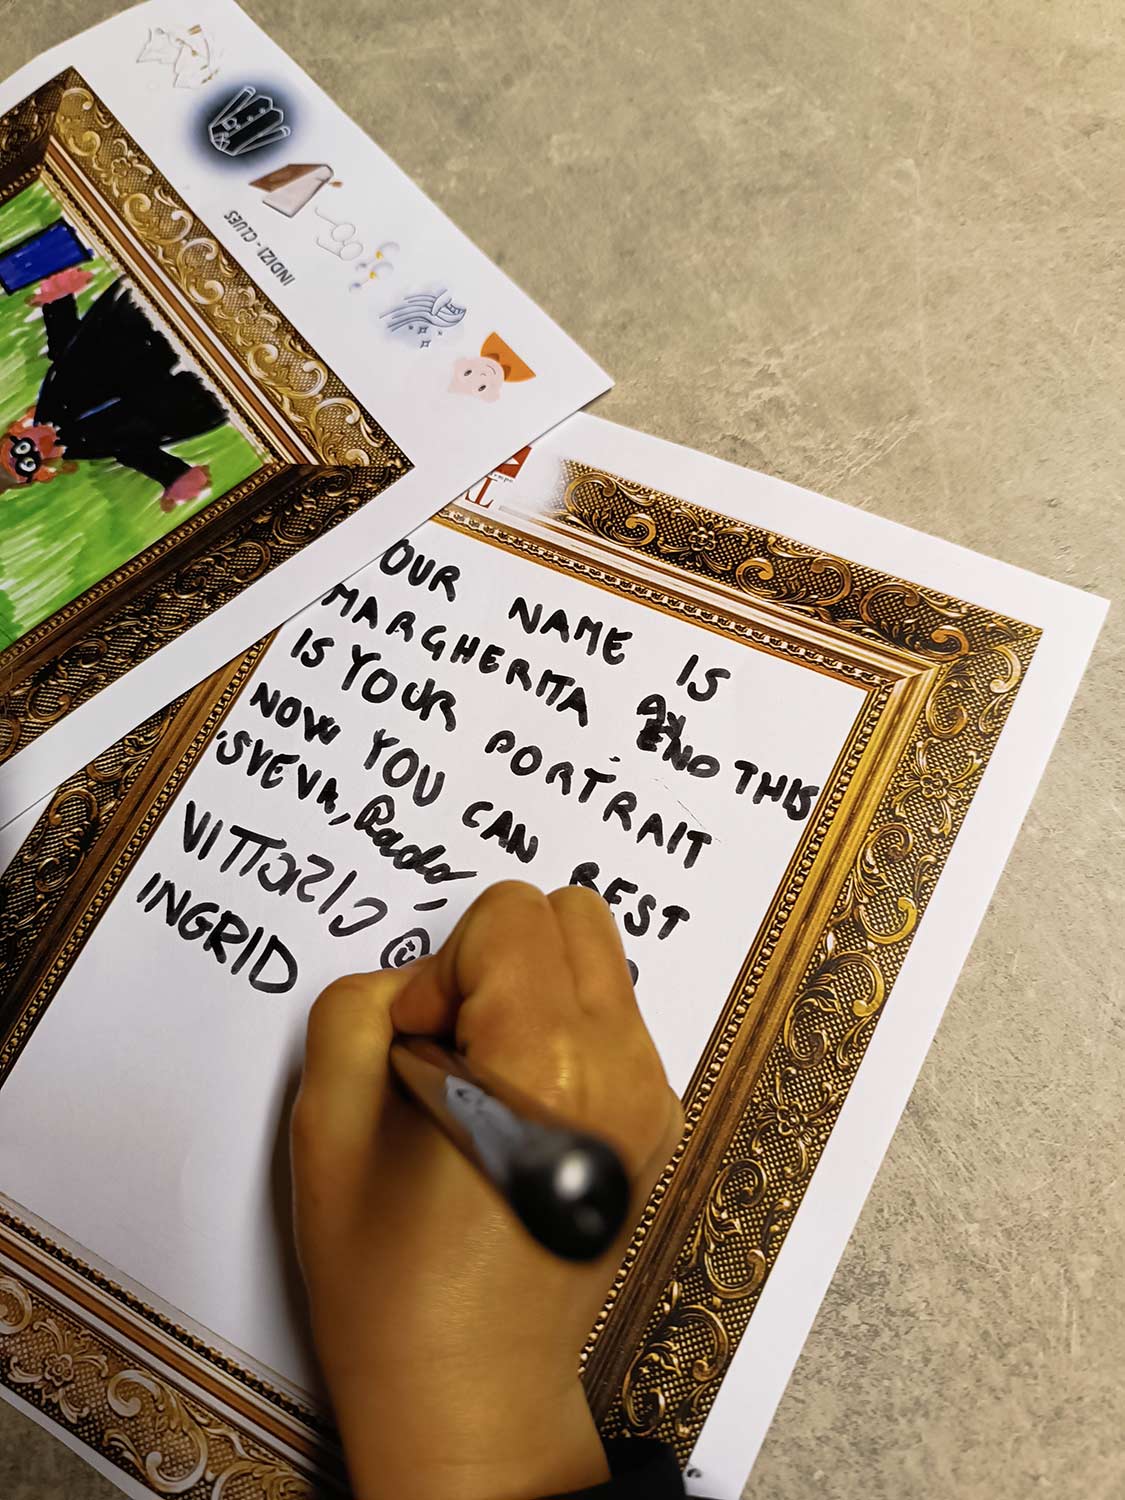 INDIZI - CLUES
OUR NAME IS
MARGHERITA AND THIS
IS YOUR PORTRAIT
NOW YOU CAN REST
SVEVA,
VITTORIO
INGRID